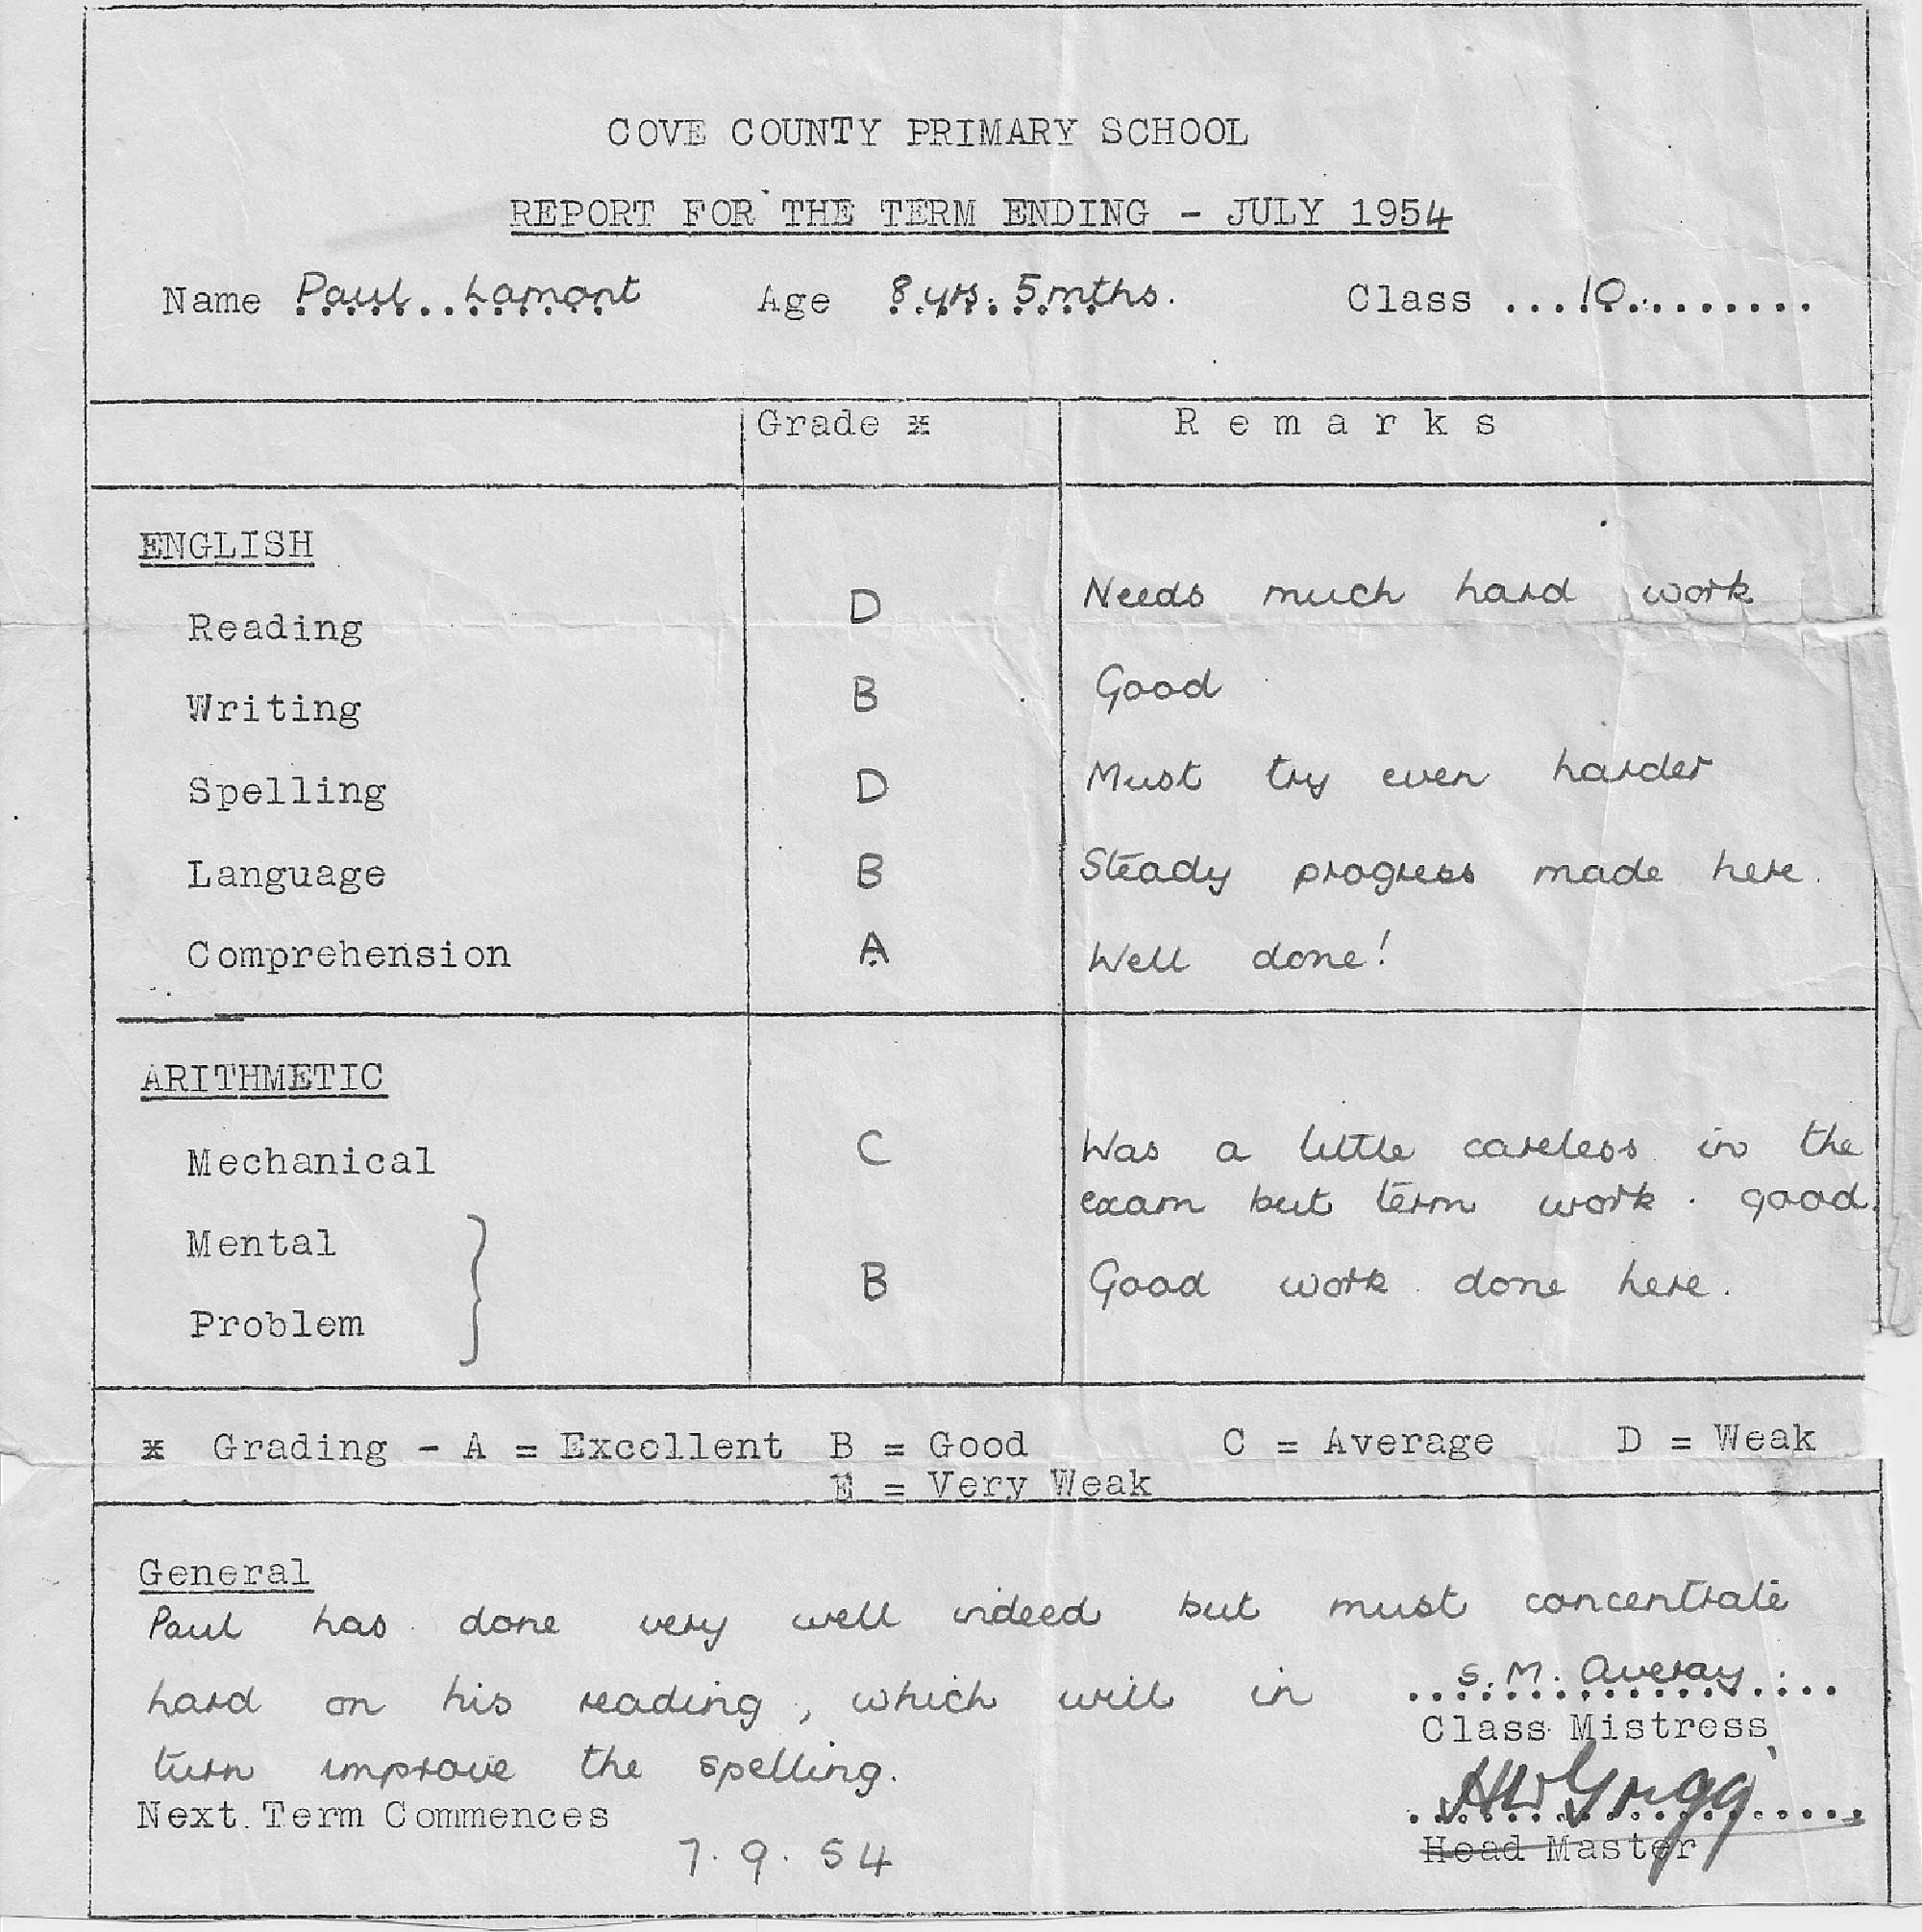 COVE COUNTY PRIMARY SCHOOL
REPORT FOR THE TERM ENDING - JULY 1954
Name Paul Lamont Age 8 yrs. 5 mths. Class ...10........
Grade * Remarks
ENGLISH
Reading D Needs much hard work
Writing B Good
Spelling D Must try even harder
Language B Steady progress made here.
Comprehension A Well done!
ARITHMETIC
Mechanical C Was a little careless in the
exam but term work good.
Mental
} B Good work done here.
Problem
* Grading - A = Excellent B = Good C = Average D = Weak
E = Very Weak
General
Paul has done very well indeed but must concentrate
hard on his reading, which will in
turn improve the spelling.
S. M. Averay
Class Mistress
HW Grigg
Head Master
Next Term Commences
7. 9. 54